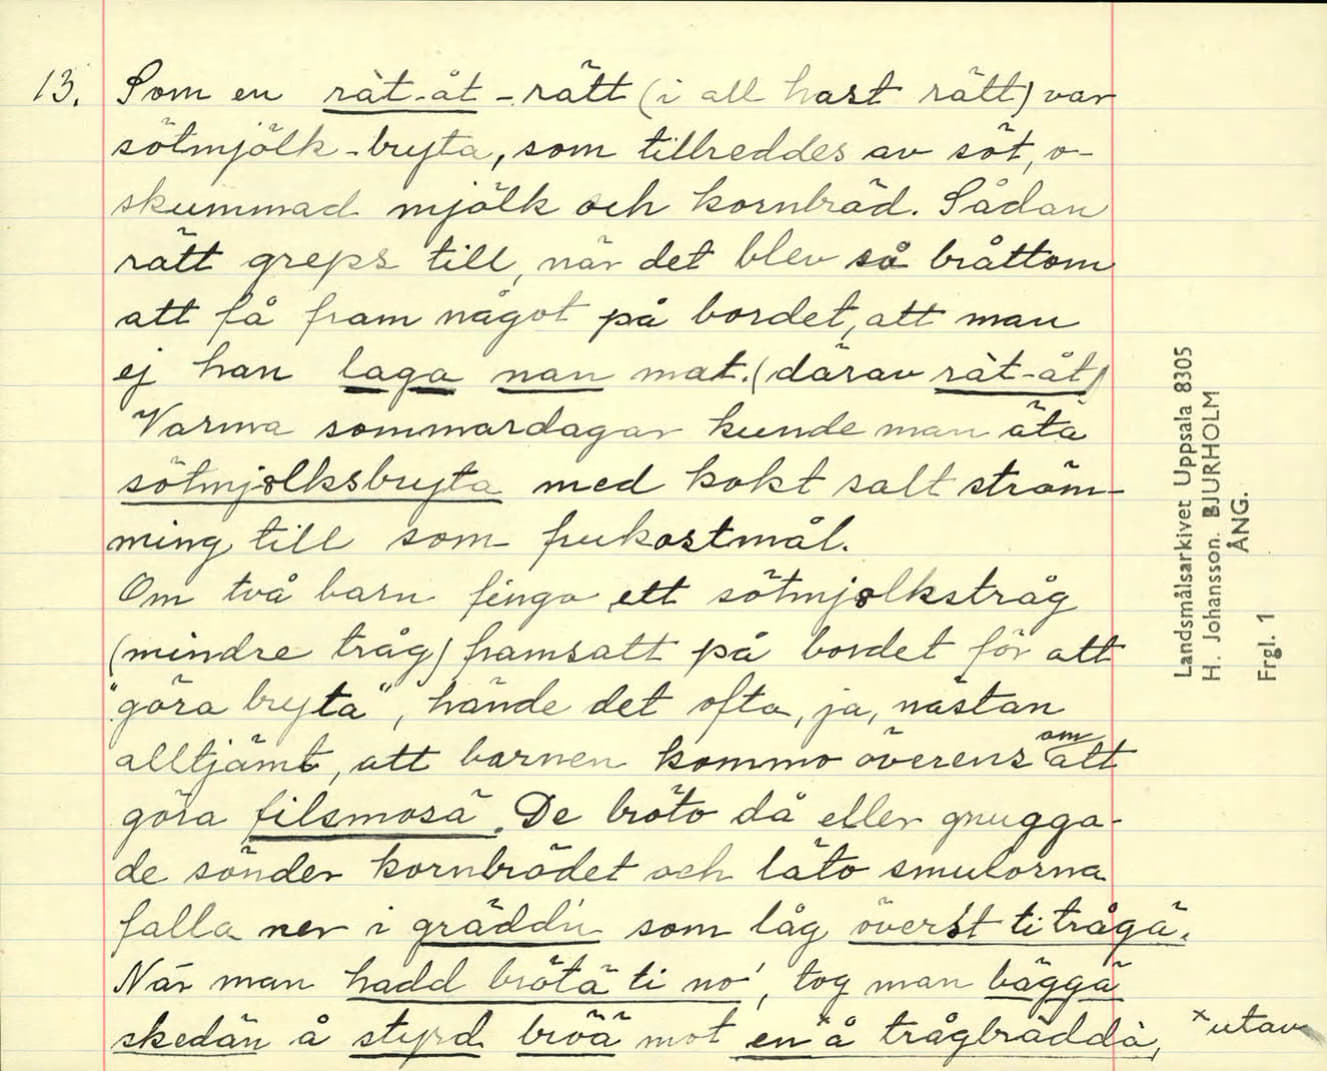 13. Som en ràt-åt-rätt (i all hast rätt) var
sötmjölk-bryta, som tillreddes av söt, o-
skummad mjölk och kornbröd. Sådan
rätt greps till, när det blev så bråttom
att få fram något på bordet, att man
ej han laga nan mat. (därav ràt-åt)
Varma sommardagar kunde man äta
sötmjolksbryta med kokt salt ström-
ming till som frukostmål.
Om två barn fingo ett sötmjolkstråg
(mindre tråg) framsatt på bordet för att
"göra bryta", hände det ofta, ja, nästan
alltjämt, att barnen kommo överens om att
göra filsmosä. De bröto då eller gnugga-
de sönder kornbrödet och läto smulorna
falla ner i gräddn som låg överst ti trågä.
När man hadd brötä ti no', tog man bäggä
skedän å styrd bröä mot en x å trågbräddà, x utav
Landsmålsarkivet Uppsala 8305
H. Johansson. BJURHOLM
ÅNG.
Frgl. 1